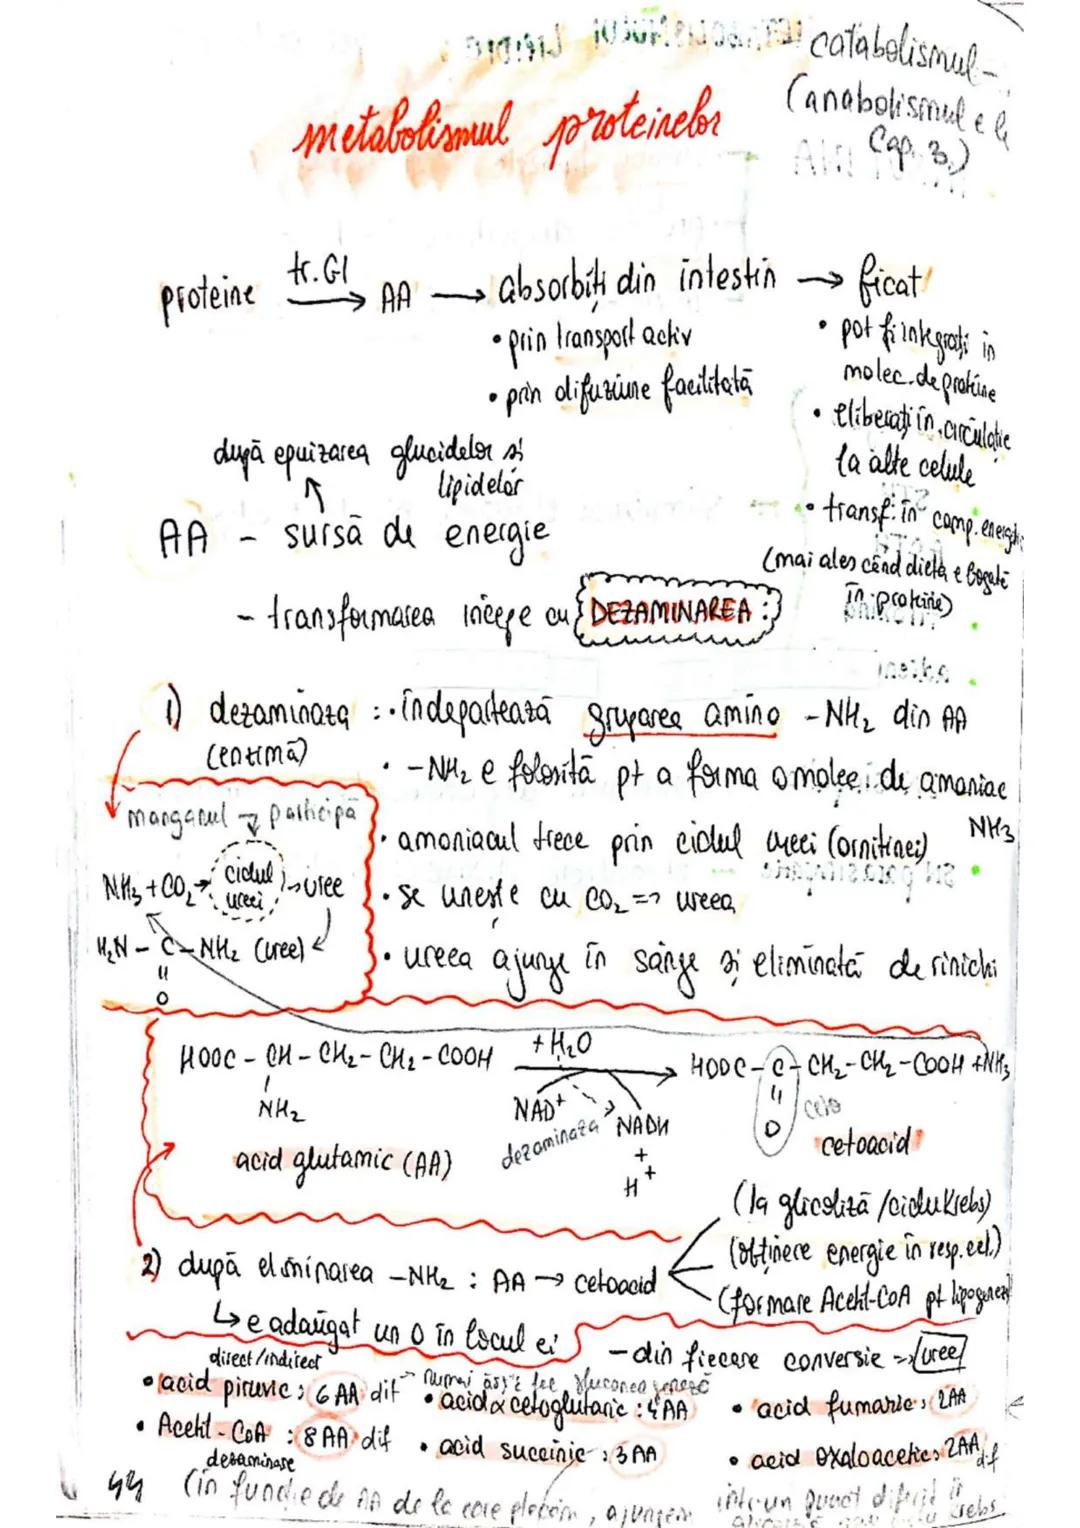 catabolismul -
(anabolismul e la
Cap. 3.)
metabolismul proteinelor
proteine tr.GI → AA → absorbiți din intestin → ficat
• prin transport activ
• prin difuziune facilitată
• pot fi integrați în
molec. de proteine
• eliberați în circulație
la alte celule
• transf. în comp. energetic
(mai ales când dieta e bogată
în proteine)
după epuizarea glucidelor și
lipidelor
AA - sursă de energie
- transformarea începe cu DEZAMINAREA :
1) dezaminaza : • îndepărtează gruparea amino -NH₂ din AA
(enzimă)
• -NH₂ e folosită pt a forma o molec. de amoniac
NH₃
• amoniacul trece prin ciclul ureei (ornitinei)
• se unește cu CO₂ => ureea
• ureea ajunge în sânge și eliminată de rinichi
manganul → participă
NH₃ + CO₂ → ciclul ureei → uree
H₂N - C - NH₂ (uree)
O
HOOC - CH - CH₂ - CH₂ - COOH + H₂O → HOOC - C - CH₂ - CH₂ - COOH + NH₃
NH₂
NAD⁺
dezaminaza
NADH
+
H⁺
O
ceto
acid glutamic (AA)
cetoacid
2) după eliminarea -NH₂ : AA → cetoacid
(la glicoliză / ciclu Krebs)
(obținere energie în resp. cel.)
(formare Acetil-CoA pt lipogeneză)
↳ e adăugat un O în locul ei
- din fiecare conversie => uree
direct/indirect
• acid piruvic : 6 AA dif
numai ăsta face gluconeogeneză
• acid α cetoglutaric : 4 AA
• acid fumaric : 2AA
• Acetil - CoA : 8 AA dif
• acid succinic : 3 AA
• acid oxaloacetic : 2AA dif
dezaminare
44 (în funcție de AA de la care plecăm, ajungem într-un punct diferit